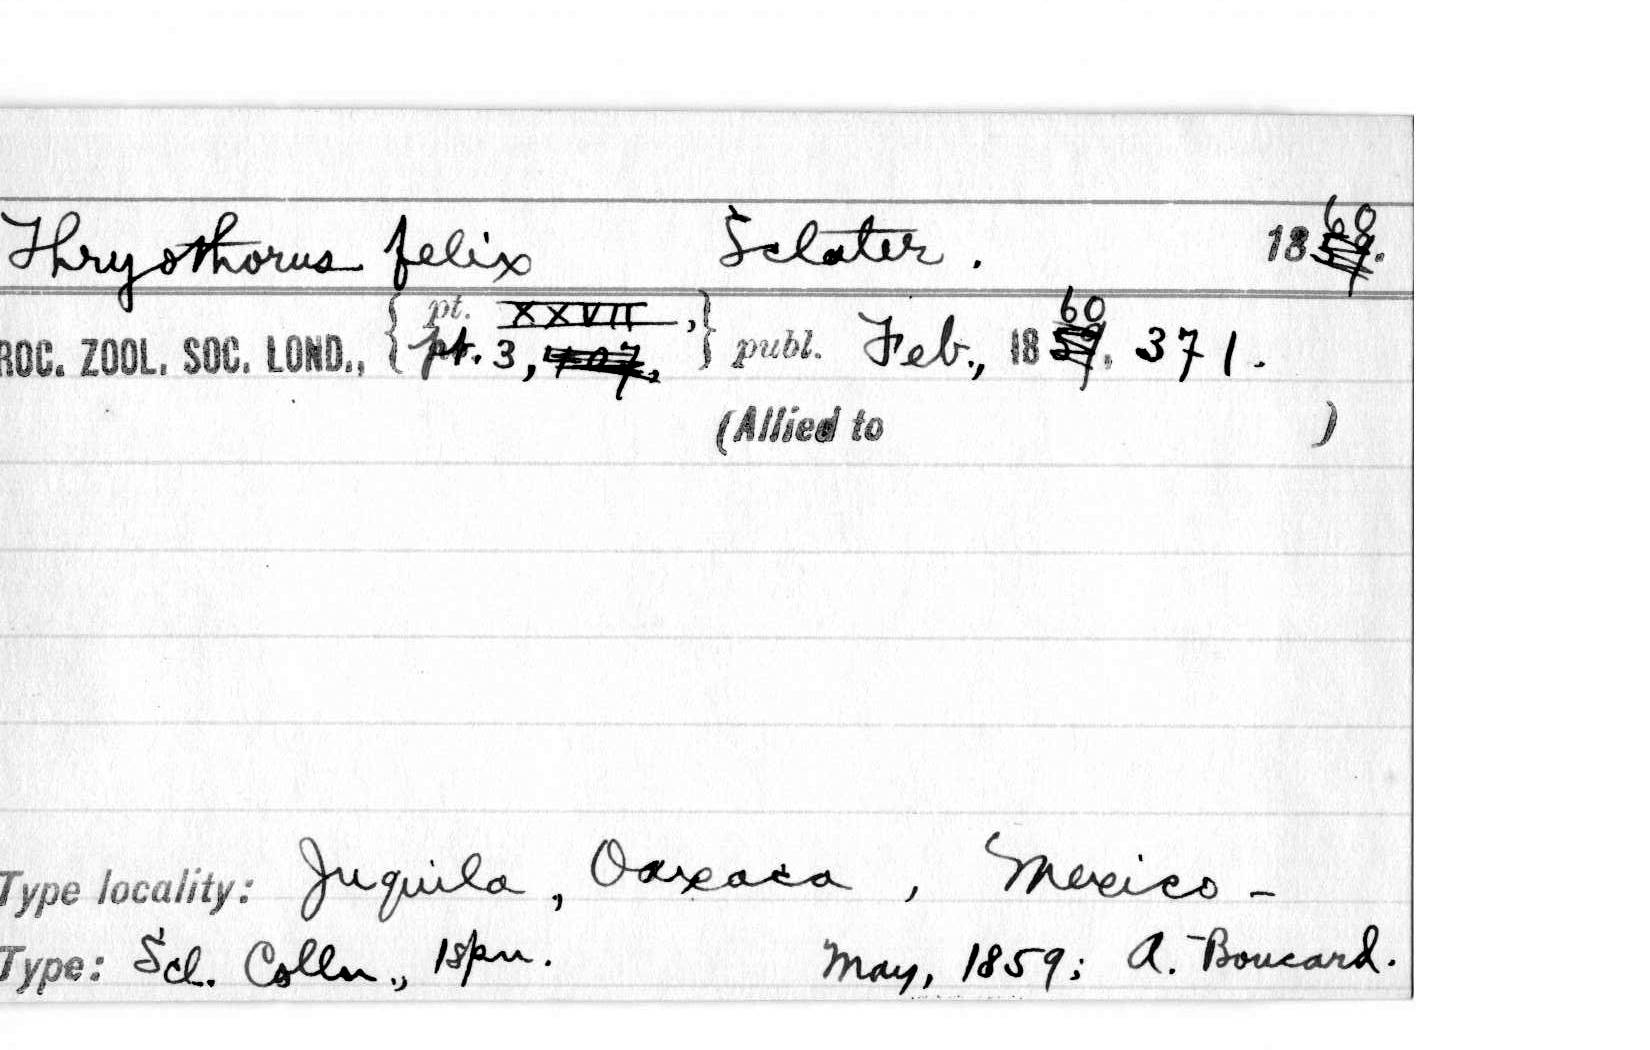 Thryothorus felix Sclater. 1860.
ROC. ZOOL. SOC. LOND., { pt. XXVII, pt. 3, } publ. Feb., 1860. 371.
(Allied to )
Type locality: Juquila, Oaxaca, Mexico -
Type: Scl. Colln., 1 spn. May, 1859; A. Boucard.